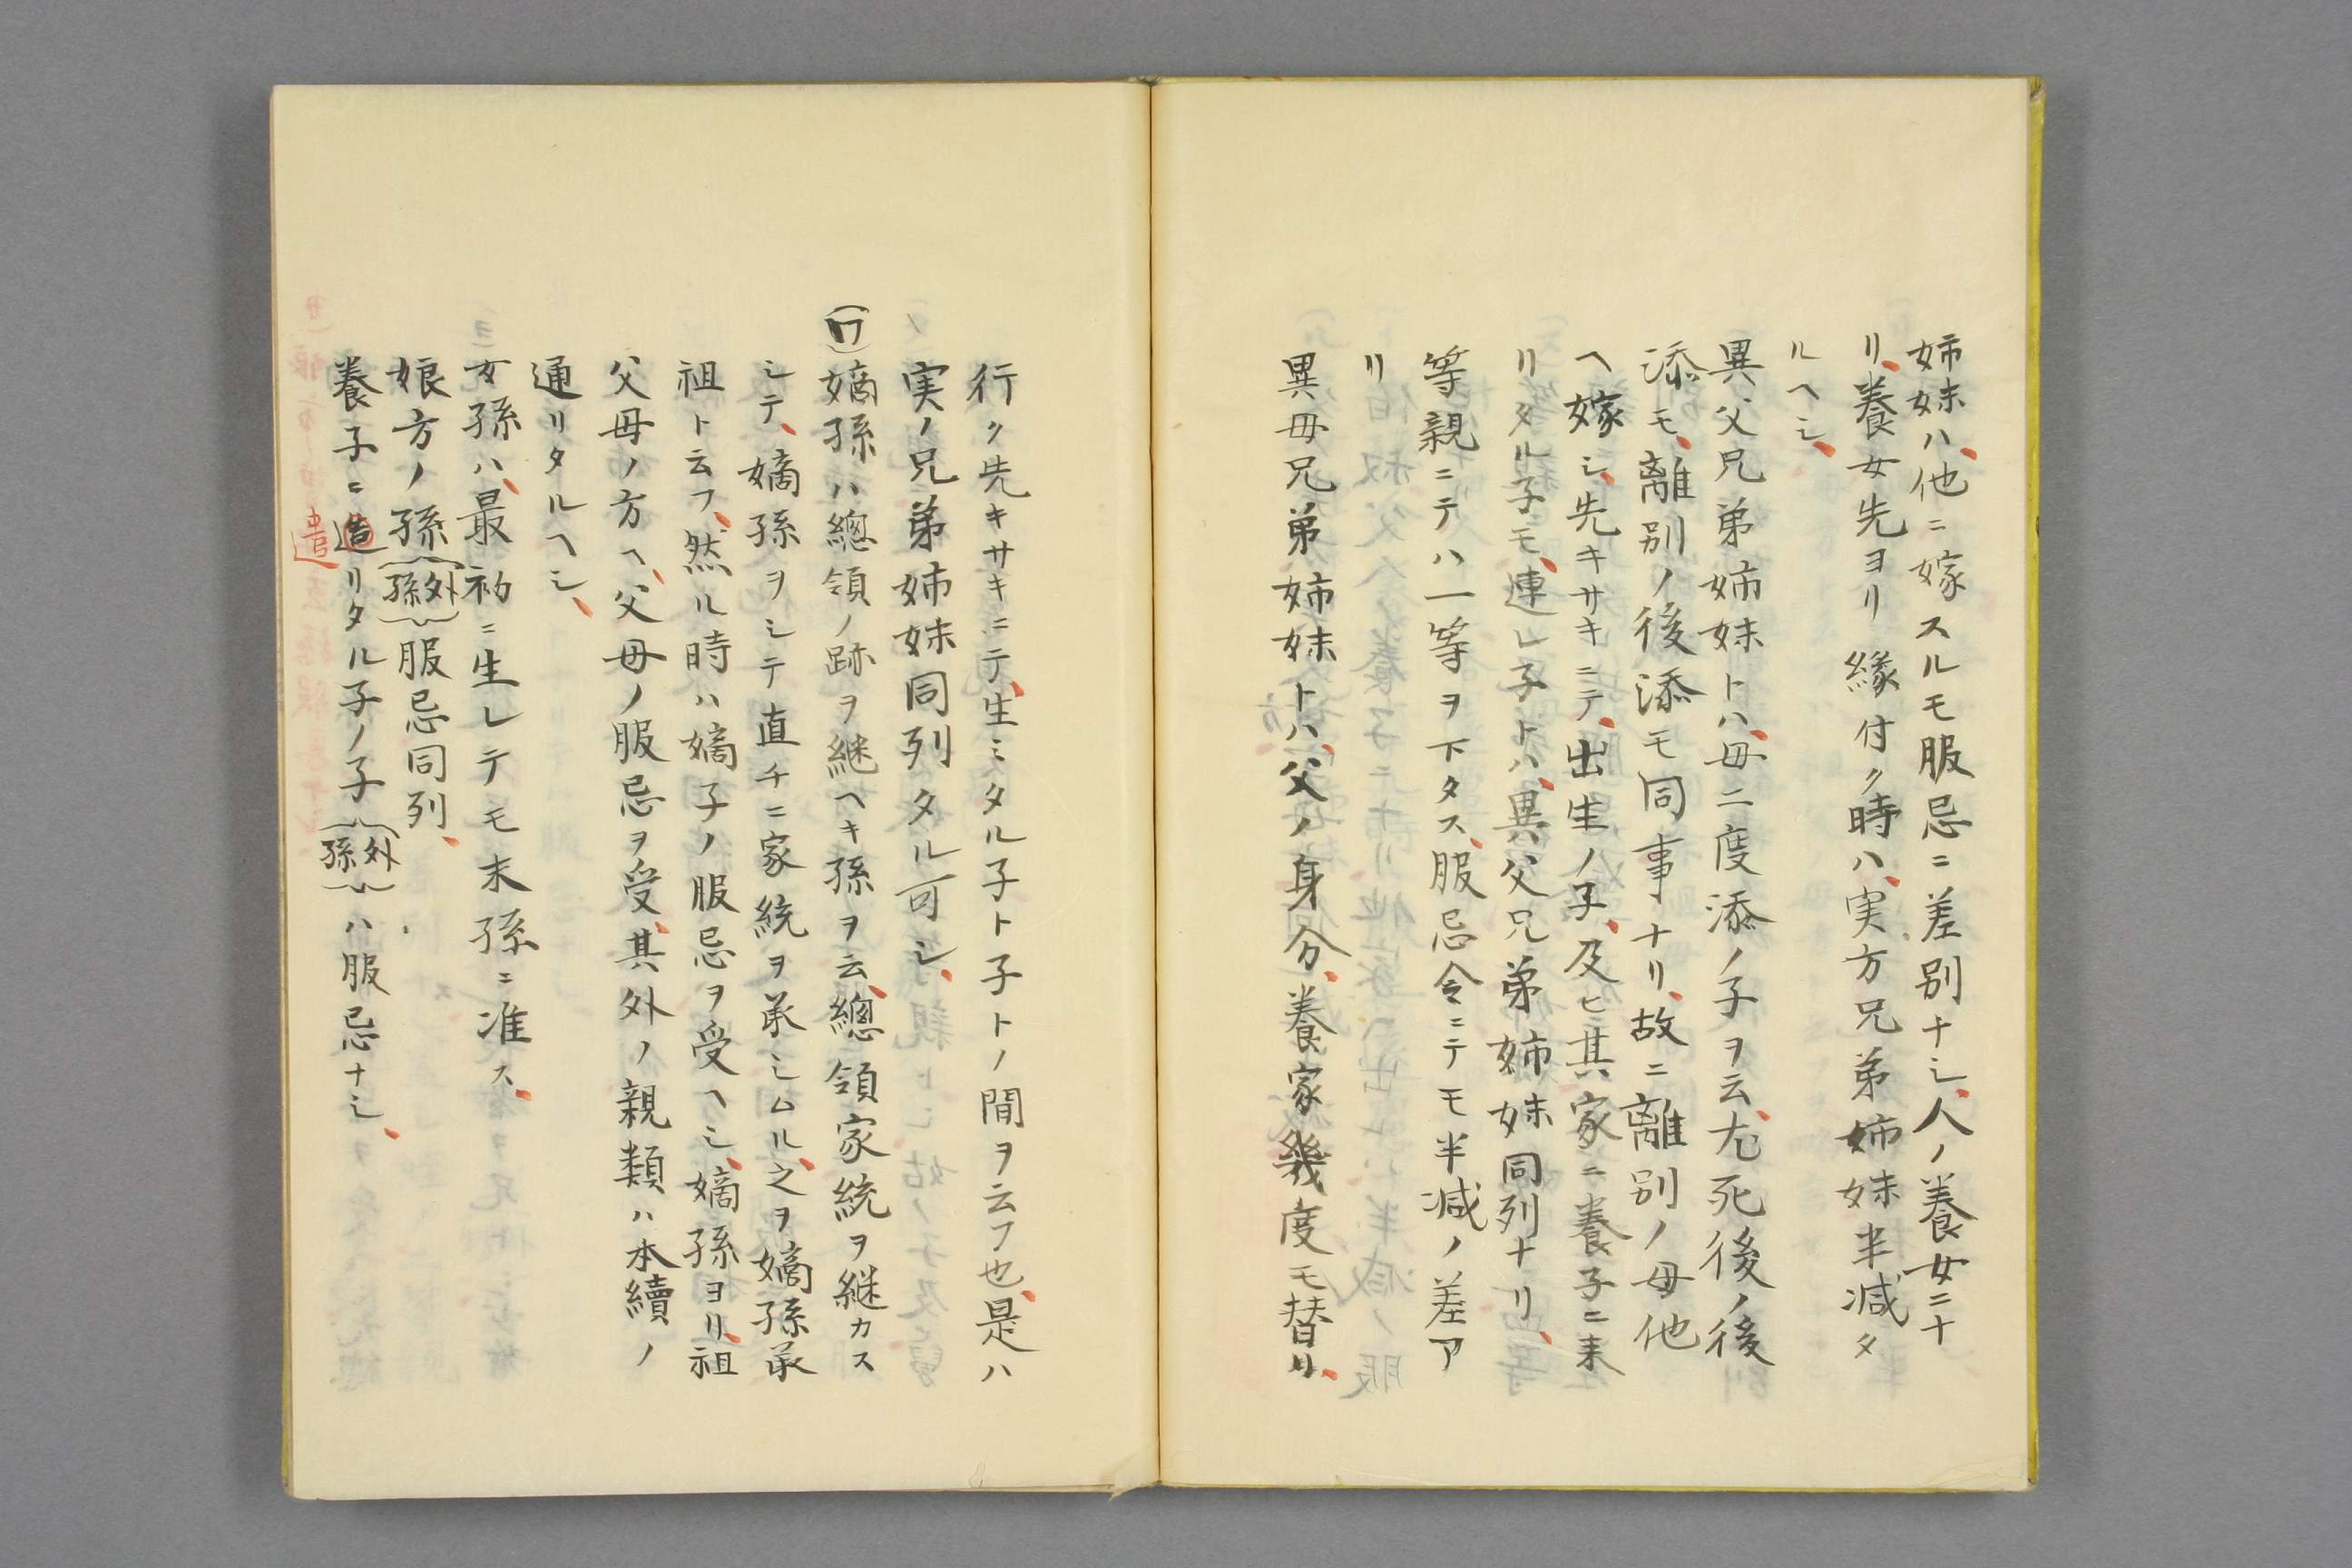 姉妹ハ、他ニ嫁スルモ服忌ニ差別ナシ、人ノ養女ニナ
リ、養女先ヨリ縁付ク時ハ、実方兄弟姉妹半減タ
ルヘシ、
異父兄弟姉妹トハ、母二度添ノ子ヲ云、尤死後ノ後
添モ、離別ノ後添モ同事ナリ、故ニ離別ノ母他
ヘ嫁シ、先キサキニテ、出生ノ子、及ヒ其家ニ養子ニ来
リタル子モ、連レ子トハ、異父兄弟姉妹同列ナリ、
等親ニテハ一等ヲ下タス、服忌令ニテモ半減ノ差ア
リ
異母兄弟姉妹トハ、父ノ身分、養家幾度モ替リ、
行ク先キサキニテ、生ミタル子ト子トノ間ヲ云フ也、是ハ
実ノ兄弟姉妹同列タル可シ、
(ワ)嫡孫ハ總領ノ跡ヲ継ヘキ孫ヲ云、總領家統ヲ継カス
シテ、嫡孫ヲシテ直チニ家統ヲ承シムル、之ヲ嫡孫承
祖ト云フ、然ル時ハ嫡子ノ服忌ヲ受ヘシ、嫡孫ヨリ、祖
父母ノ方ヘ、父母ノ服忌ヲ受、其外ノ親類ハ本續ノ
通リタルヘシ、
女孫ハ、最初ニ生レテモ末孫ニ准ス、
娘方ノ孫(外孫)服忌同列、
養子ニ造リタル子ノ子(外孫)ハ服忌ナシ、
遣